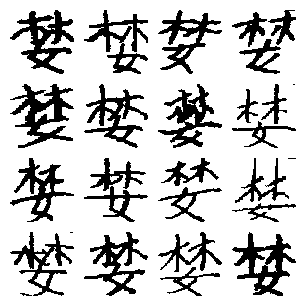 婪婪婪婪
婪婪婪婪
婪婪婪婪
婪婪婪婪